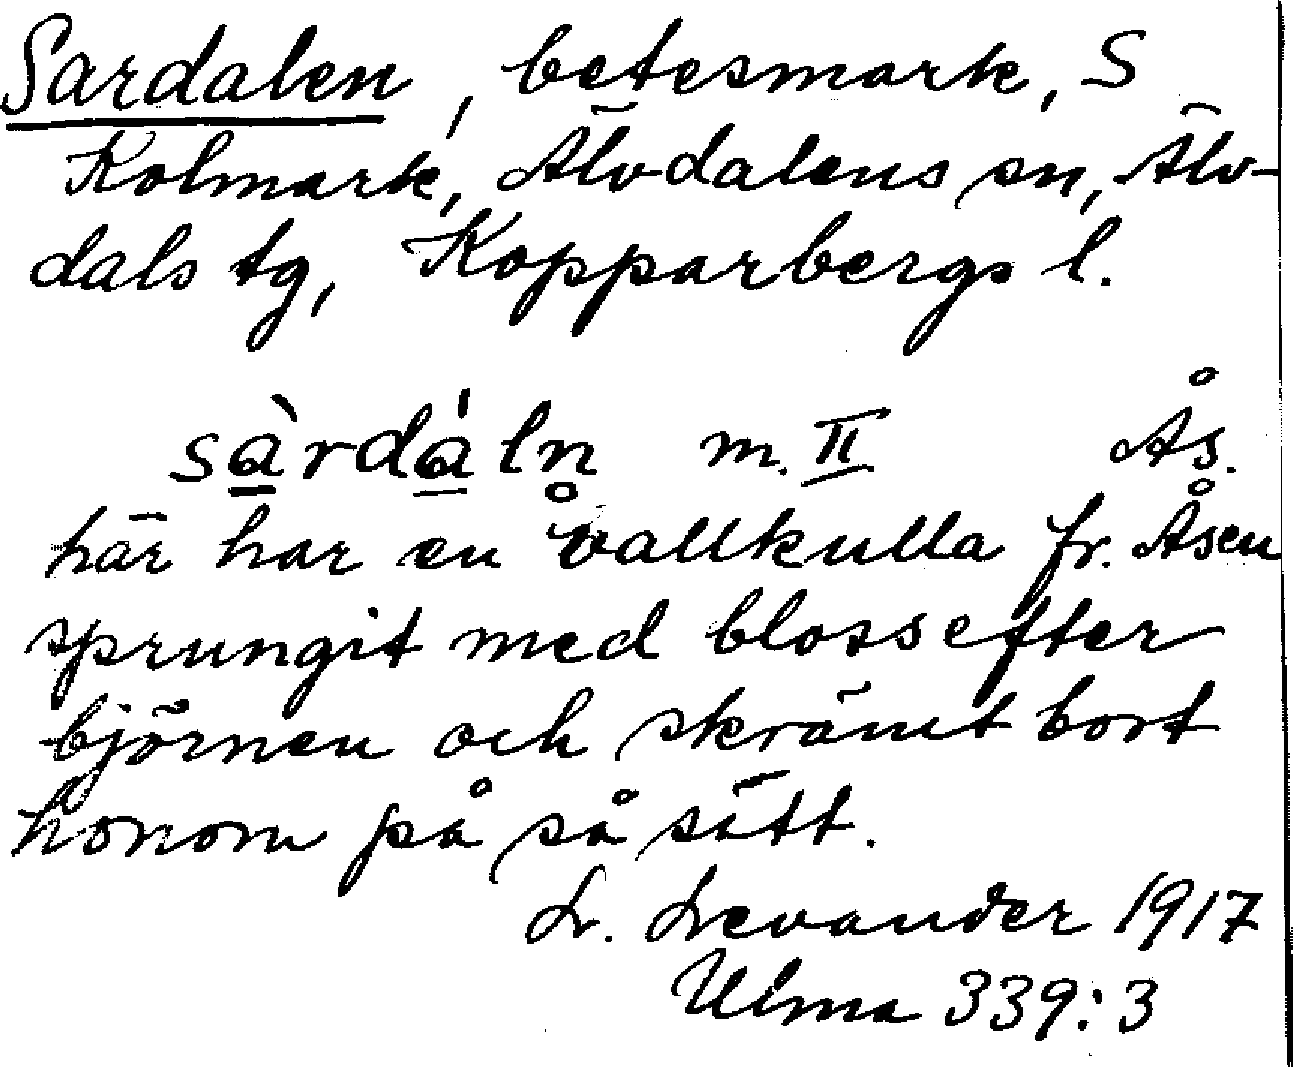 Sardalen, betesmark, S
Kolmark, Älvdalens sn, Älv-
dals tg, Kopparbergs l.
sàrdáln m. II Ås.
här har en vallkulla fr. Åsen
sprungit med bloss efter
björnen och skrämt bort
honom på så sätt.
L. Levander 1917
Ulma 339:3